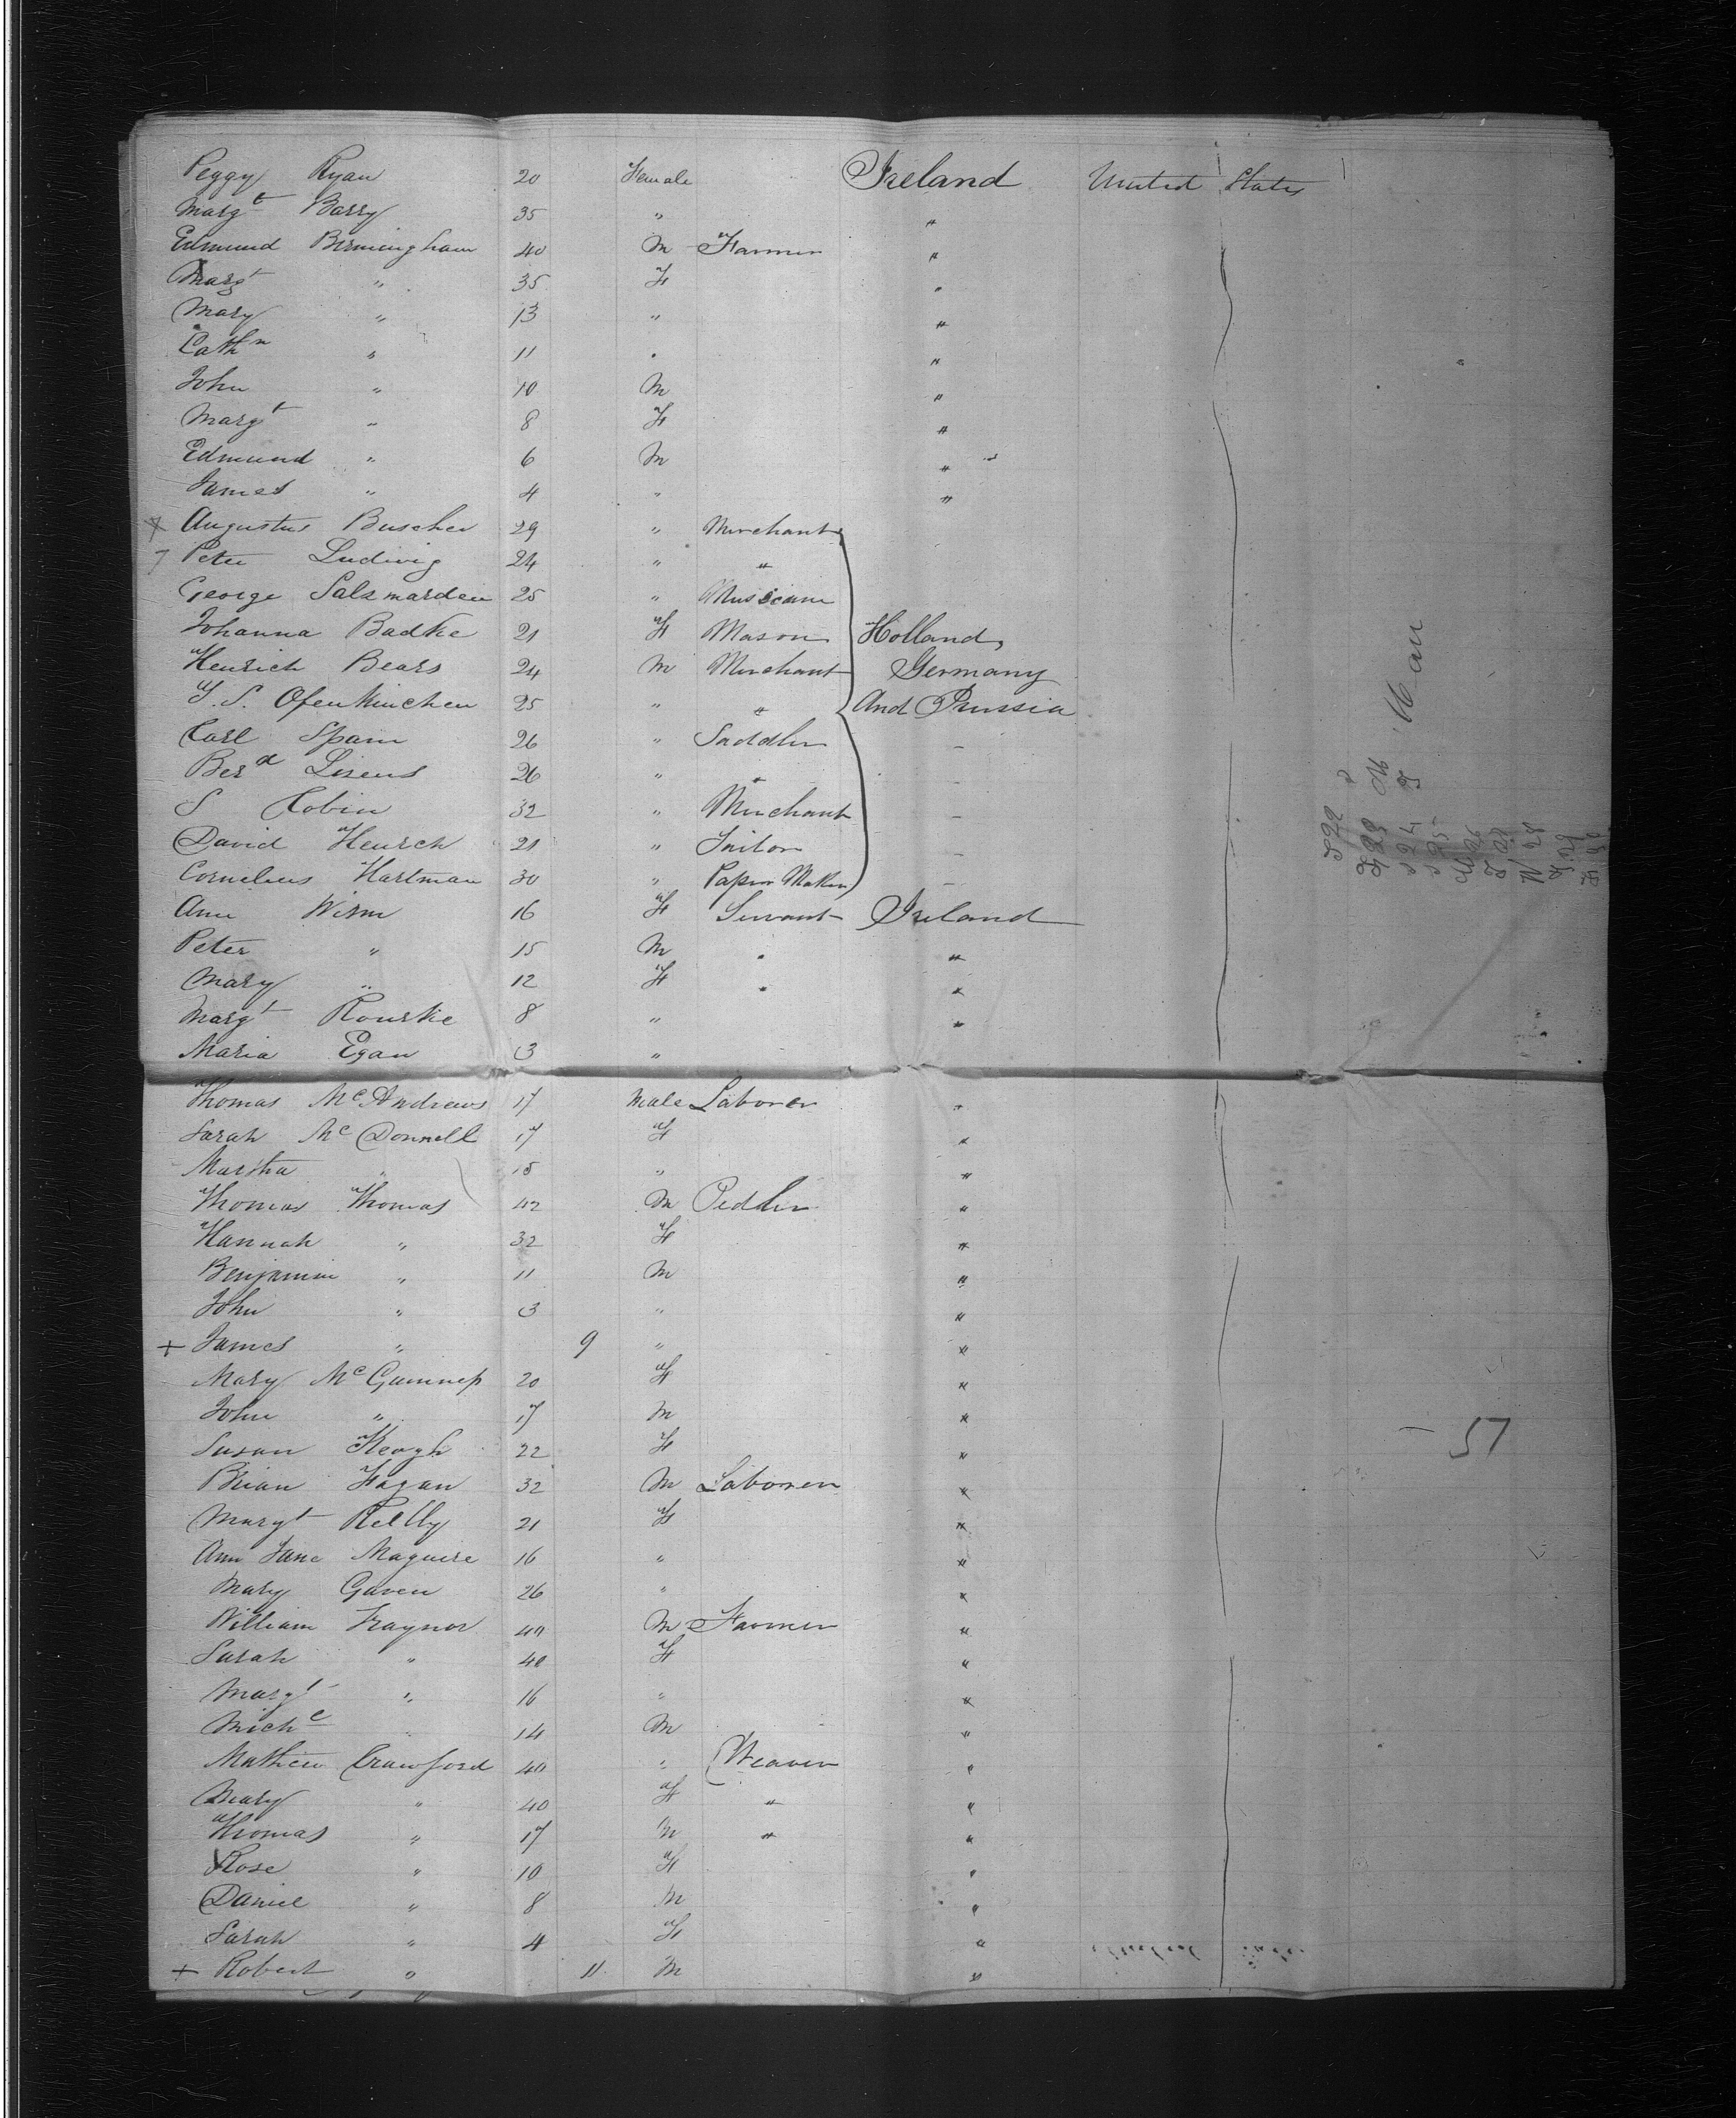 Peggy Ryan 20 Female Ireland United States
Margt Barry 35 " "
Edmund Birmingham 40 M Farmer "
Margt " 35 F "
Mary " 13 " "
Cathn " 11 " "
John " 10 M "
Margt " 8 F "
Edmund " 6 M "
James " 4 " "
Augustus Buscher 29 " Merchant
Peter Ludwig 24 " "
George Salzmarden 25 " Musician
Johanna Badke 21 F Mason Holland,
Henrich Bears 24 M Merchant Germany
25 " " And Prussia
Carl Spam 26 " Saddler
Berd 26 " "
S Cobin 32 " Merchant
David Heusch 21 " Tailor
Cornelius Hartman 30 " Paper Maker
Ann 16 F Servant Ireland
Peter " 15 M " "
Mary " 12 F " "
Margt Rourke 8 " "
Maria Egan 3 "
Thomas McAndrews 17 Male Laborer "
Sarah McDonnell 17 F "
Martha " 15 " "
Thomas Thomas 42 M Pedler "
Hannah " 32 F "
Benjamin " 11 M "
John " 3 " "
+ James " 9 " "
Mary 20 F "
John " 17 M "
Susan Keogh 22 F "
Brian Fagan 32 M Laborer "
Margt Reilly 21 F "
Ann Jane Maguire 16 " "
Mary Gaven 26 " "
William Traynor 40 M Farmer "
Sarah " 40 F "
Margt " 16 " "
Michl 14 M "
Mathew Crawford 40 " Weaver "
Mary " 40 F " "
Thomas " 17 M " "
Rose " 10 F "
Daniel " 8 M "
Sarah " 4 F "
+ Robert " 11 M "
57